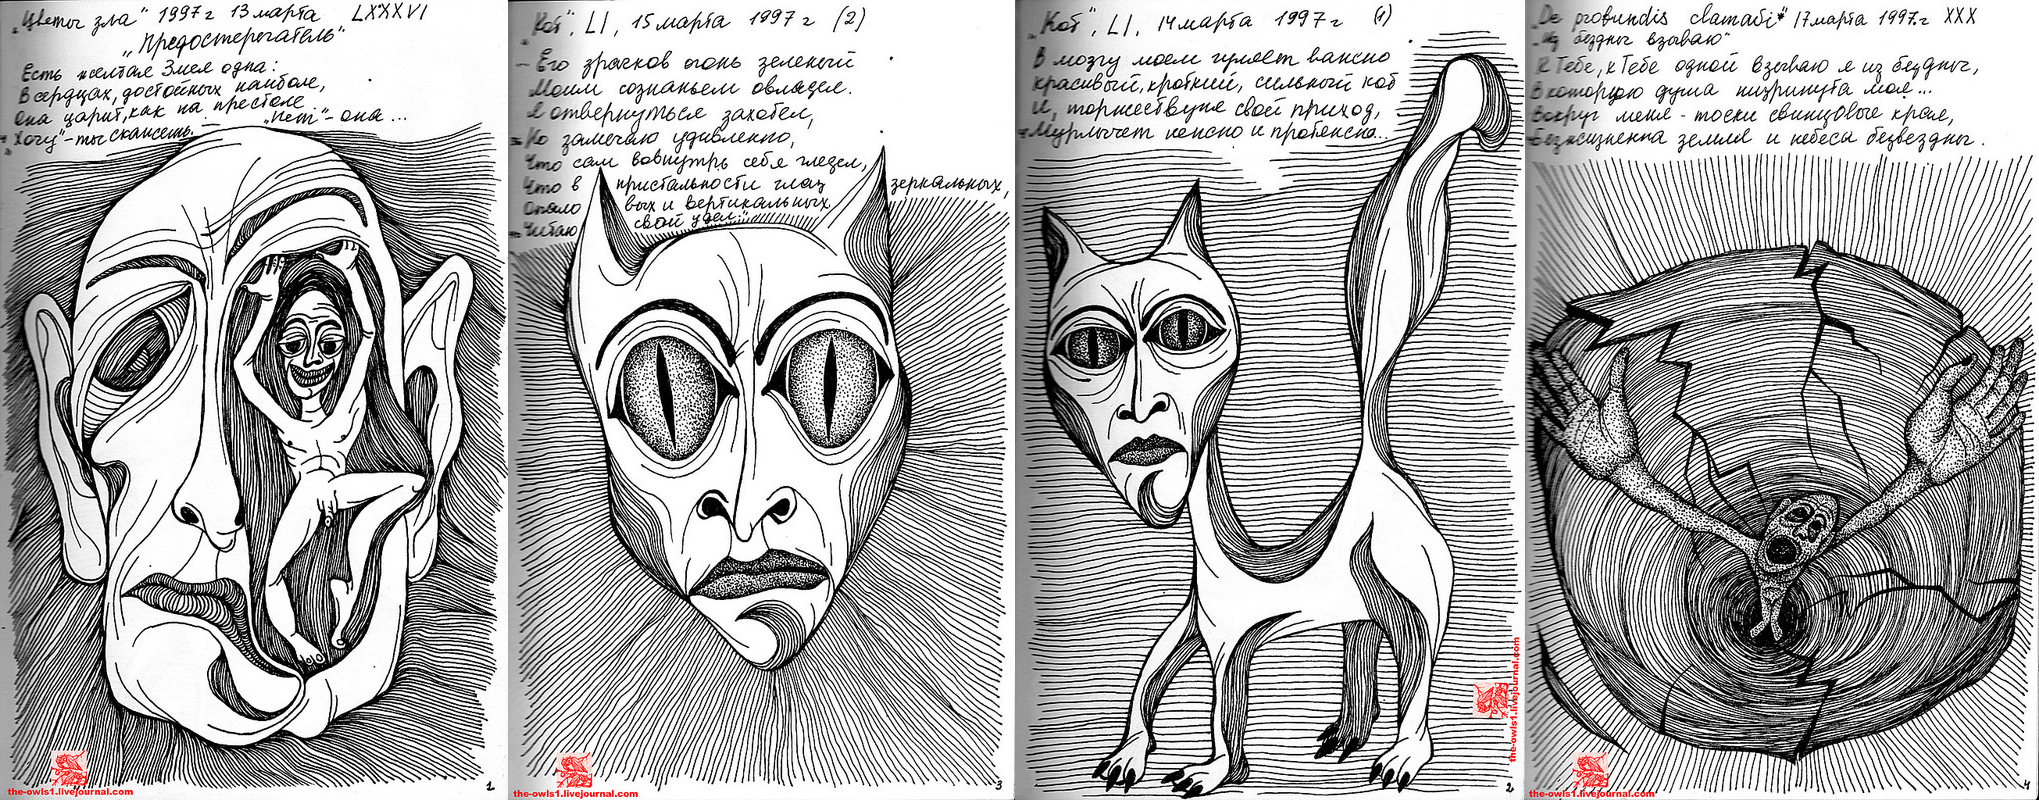 „Цветы зла" 1997 г 13 марта LXXXVI
„Предостерегатель"
Есть желтая Змея одна:
В сердцах, достойных наиболе,
Она царит, как на престоле
„Хочу"- ты скажешь. - „Нет"- она...
the-owls1.livejournal.com
1
„Кот", LI, 15 марта 1997 г (2)
- Его зрачков огонь зеленый
Моим сознаньем овладел.
Я отвернуться захотел,
Но замечаю удивленно,
Что сам вовнутрь себя глядел,
Что в пристальности глаз зеркальных,
вых и вертикальных
Читаю свой удел..."
the-owls1.livejournal.com
3
„Кот", LI, 14 марта 1997 г (1)
В мозгу моем гуляет важно
красивый, кроткий, сильный кот
И, торжествуя свой приход,
Мурлычет нежно и протяжно...
the-owls1.livejournal.com
2
„De profundis clamavi" 17 марта 1997 г XXX
„Из бездны взываю"
К Тебе, к Тебе одной взываю я из бездны,
В которую душа низринута моя...
Вокруг меня - тоски свинцовые края,
Безжизненна земля и небеса беззвездны.
the-owls1.livejournal.com
4